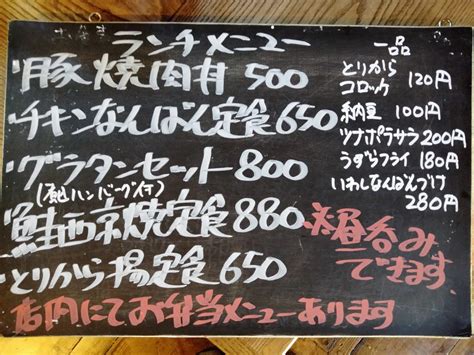 ランチメニュー
・豚焼肉丼 500
・チキンなんばん定食 650
・グラタンセット 800
ハンバーグ付
・鮭西京焼定食 880
・とりから揚定食 650
店内にてお弁当メニューあります
一品
とりから
コロッケ 120円
納豆 100円
ツナポテサラ 200円
うずらフライ 180円
いわしなんばんづけ
280円
※昼呑み
できます